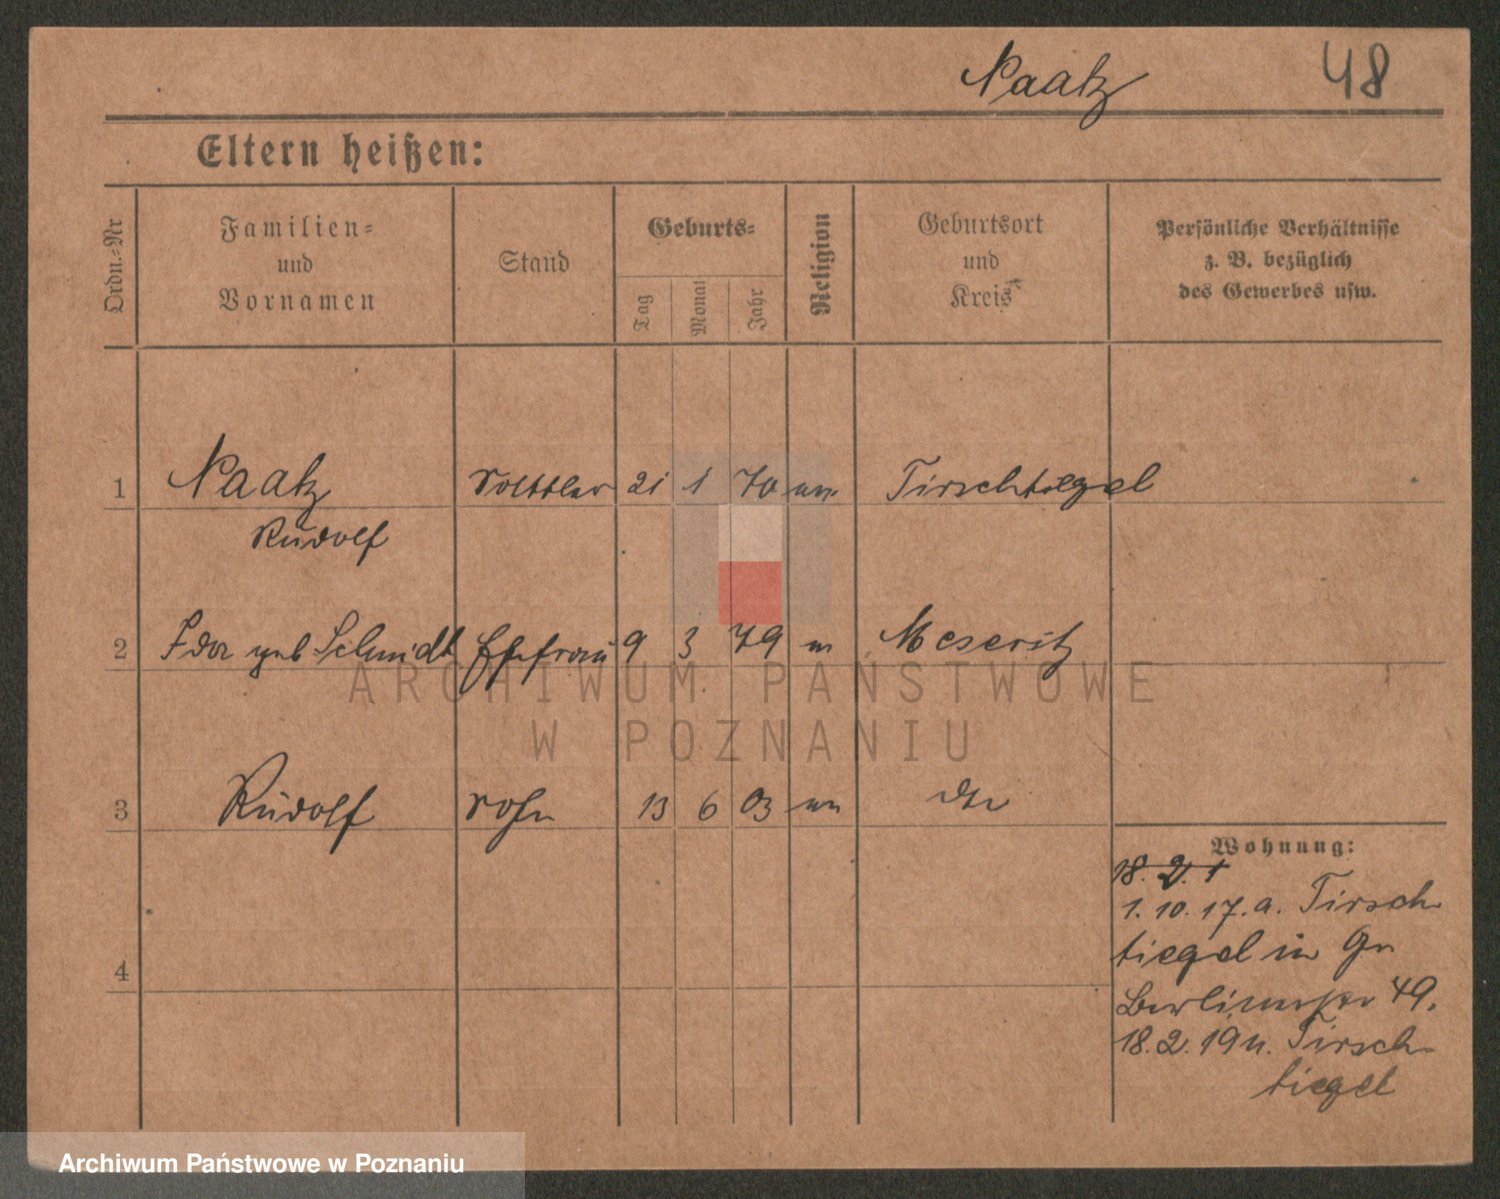 Naatz 48
Eltern heißen:
Ordn.-Nr
Familien-
und
Vornamen
Stand
Geburts-
Tag
Monat
Jahr
Religion
Geburtsort
und
Kreis
Persönliche Verhältnisse
z. B. bezüglich
des Gewerbes usw.
1 Naatz Sattler 21 1 70 Tirschtiegel
Rudolf
2 Ida geb Schmidt Ehefrau 9 3 79 Meseritz
3 Rudolf Sohn 13 6 03 dto
4
Wohnung:
18. 2. 1
1. 10. 17. a. Tirsch
tiegel in Gr
Berlinerstr 49.
18. 2. 19 n. Tirsch-
tiegel
ARCHIWUM PAŃSTWOWE
W POZNANIU
Archiwum Państwowe w Poznaniu